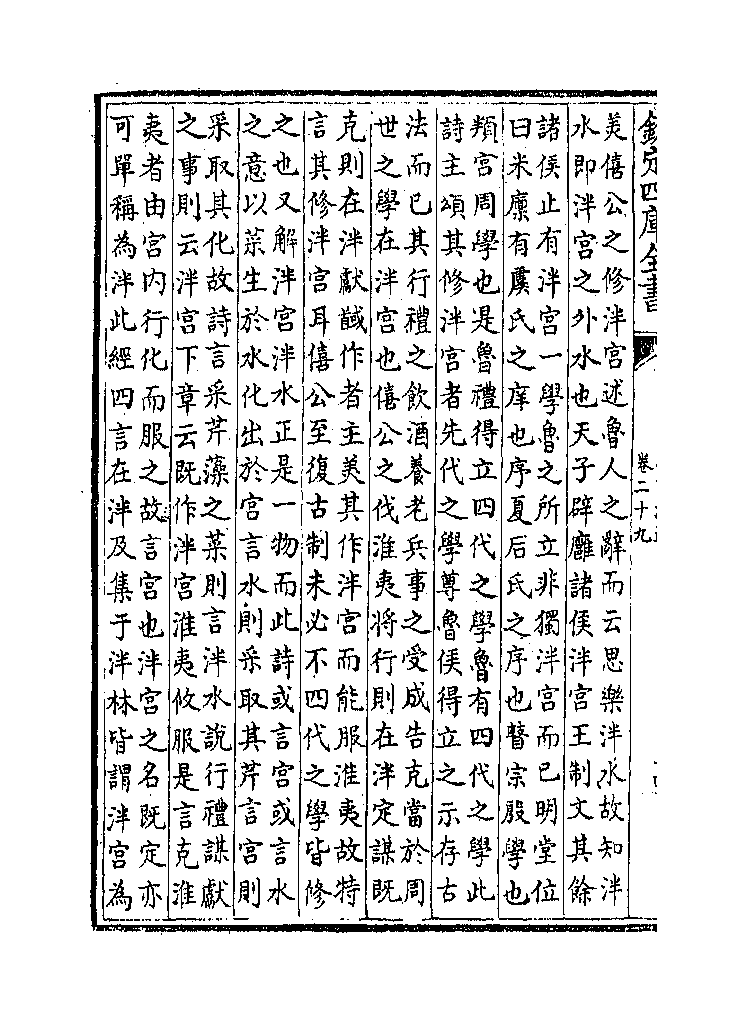 欽定四庫全書
卷二十九
美僖公之修泮宮述魯人之辭而云思樂泮水故知泮
水即泮宮之外水也天子辟廱諸侯泮宮王制文其餘
諸侯止有泮宮一學魯之所立非獨泮宮而已明堂位
曰米廩有虞氏之庠也序夏后氏之序也瞽宗殷學也
頖宮周學也是魯禮得立四代之學魯有四代之學此
詩主頌其修泮宮者先代之學尊魯侯得立之示存古
法而已其行禮之飲酒養老兵事之受成告克當於周
世之學在泮宮也僖公之伐淮夷將行則在泮定謀既
克則在泮獻馘作者主美其作泮宮而能服淮夷故特
言其修泮宮耳僖公至復古制未必不四代之學皆修
之也又解泮宮泮水正是一物而此詩或言宮或言水
之意以菜生於水化出於宮言水則采取其芹言宮則
采取其化故詩言采芹藻之菜則言泮水說行禮謀獻
之事則云泮宮下章云既作泮宮淮夷攸服是言克淮
夷者由宮內行化而服之故言宮也泮宮之名既定亦
可單稱為泮此經四言在泮及集于泮林皆謂泮宮為